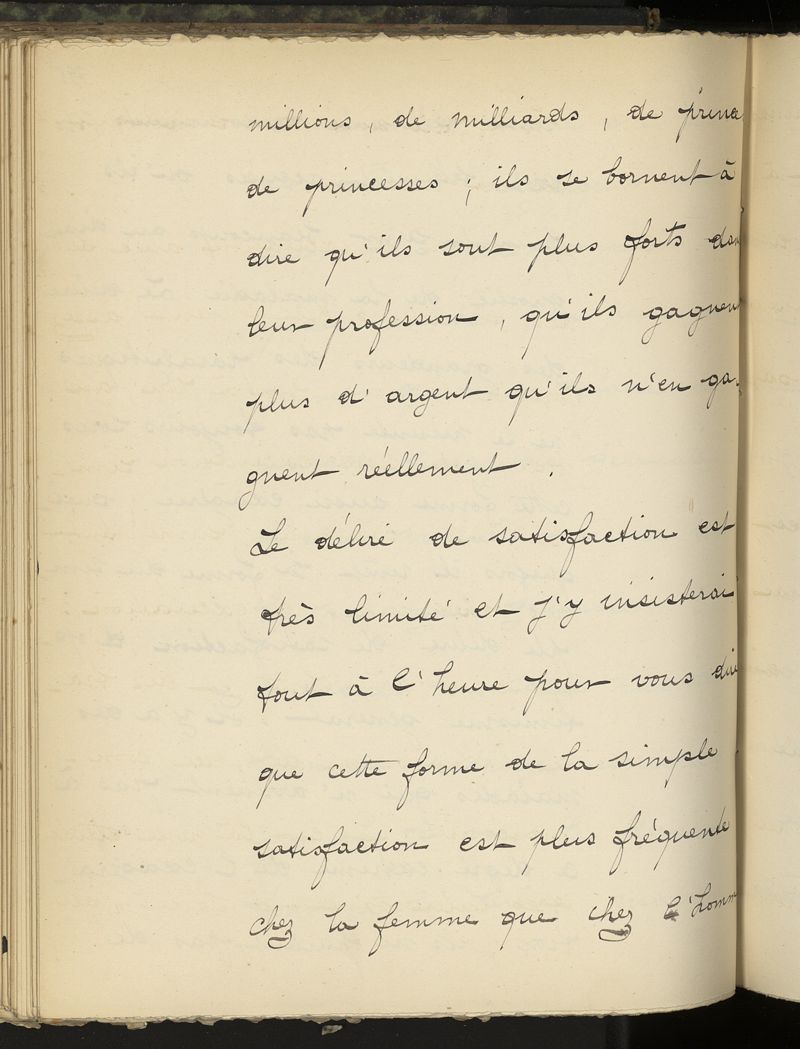 millions, de milliards, de princ
de princesses ; ils se bornent à
dire qu'ils sont plus forts dans
leur profession, qu'ils gagnent
plus d'argent qu'ils n'en ga-
gnent réellement.
Le délire de satisfaction est
très limité et j'y insisterai
tout à l'heure pour vous dire
que cette forme de la simple
satisfaction est plus fréquente
chez la femme que chez l'homm